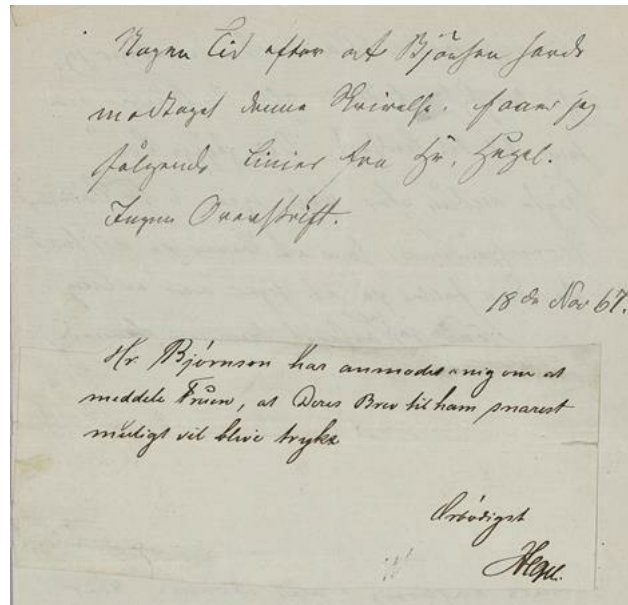 Nogen Tid efter at Björnsen havde
modtaget denne Skrivelse. faaer jeg
følgende Linier fra Hr. Hegel.
Ingen Overskrift.
18de Nov 67.
Hr Bjørnson har anmodet mig om at
meddele Fruen, at Deres Brev til ham snarest
muligt vil blive trykt
Ærbödigst
Hegel.